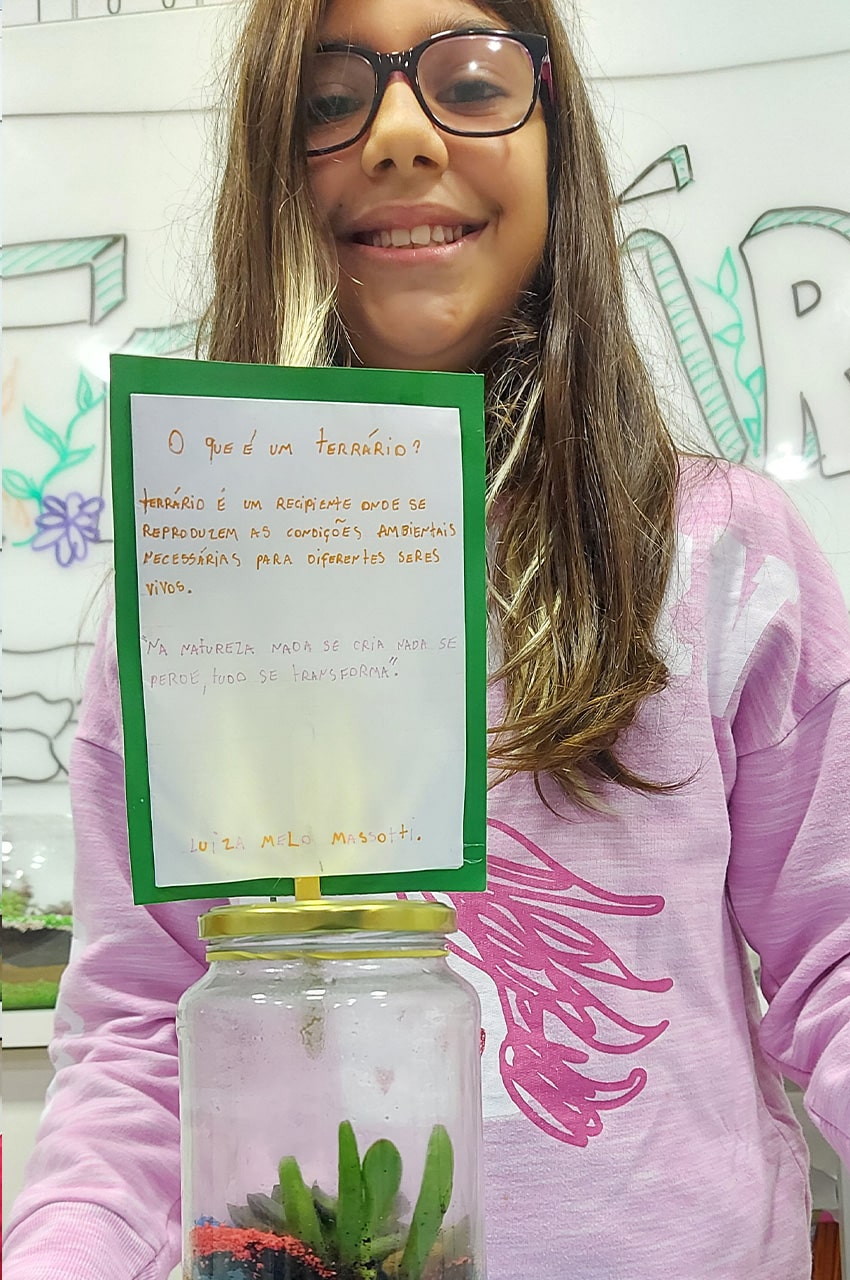 O QUE É UM TERRÁRIO?
TERRÁRIO É UM RECIPIENTE ONDE SE
REPRODUZEM AS CONDIÇÕES AMBIENTAIS
NECESSÁRIAS PARA DIFERENTES SERES
VIVOS.
"NA NATUREZA NADA SE CRIA NADA SE
PERDE, TUDO SE TRANSFORMA".
LUIZA MELO MASSOTTI.